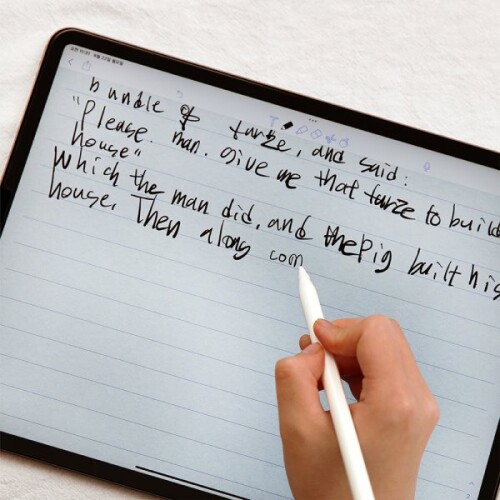 bundle of turze, and said:
"Please. man. give me that turze to build
house"
Which the man did, and the pig built his
house. Then along com